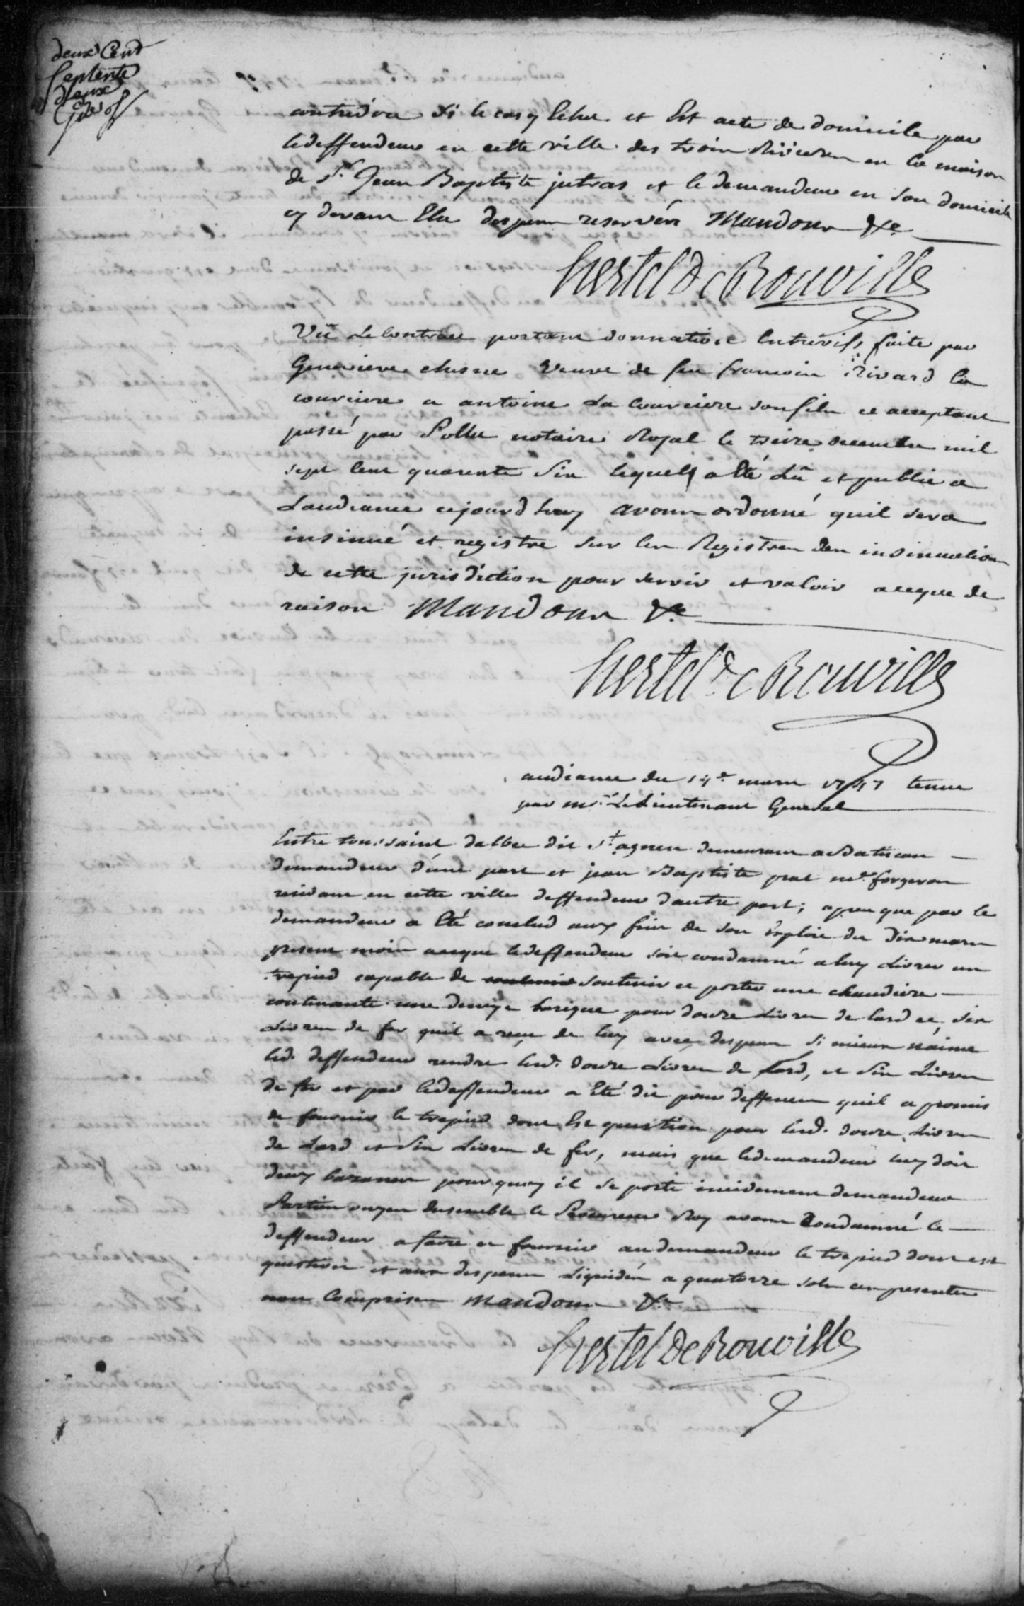 deux Cent
Septente
deux
contredire si le cas y Echet et Est acte de domicile par
le deffendeur en cette ville des trois Rivieres en la maison
de Sr. Jean Baptiste jutras et le demandeur en son domicile
cy devant Elu despens reservés Mandons &c.
hertel de Rouville
Vû Le Contrat portant donnation Entrevifs faite par
Genevieve chesne Veuve de feu francois Rivard la
courciere a antoine La Courciere son fils ce acceptant
passé par Pollet notaire Royal le treize decembre mil
sept Cent quarente Six lequel a Eté Lû et publié a
Laudiance cejourdhuy avons ordonné quil sera
insinué et registré sur les Registres des insinuations
de cette jurisdiction pour servir et valoir aceque de
raison Mandons &c.
hertel de Rouville
audiance du 14e. mars 1747 tenue
par mr. Le Lieutenant General
Entre toussaint dalbec dit St agnen demeurant a Batiscan
demandeur d'une part et jean Baptiste prat me. forgeron
residant en cette ville deffendeur dautre part; apres que par le
demandeur a Eté conclud aux fins de son Exploit du Dix mars
present mois aceque le deffendeur soit condamné a luy Livrer un
trepied capable de soutenir et porter une chaudiere
contenante une demye barique pour douze Livres de Lard et six
Livres de fer quil a reçu de luy avec despens si mieux n'aime
led. deffendeur rendre lesd. douze Livres de Lard, et Six Livres
de fer et par le deffendeur a Eté dit pour deffenses quil a promis
de fournir le trepied dont Est question pour lesd. douze Livres
de Lard et Six Livres de fer, mais que le demandeur luy doit
deux pourquoy il se porte incidemment demandeur
Parties ouyes Ensemble le Procureur du Roy avons Condamné le
deffendeur a faire et fournir au demandeur le trepied dont est
question et aux despens Liquidés a quatorze sols ces presentes
non Comprises Mandons &c.
hertel de Rouville